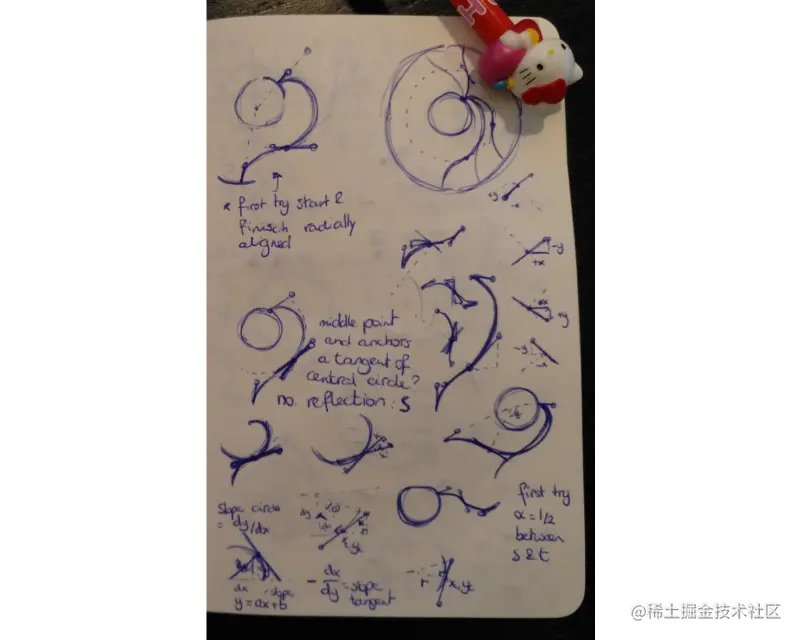 * first try start &
finisch radially
aligned
+y
-y
+x
middle point
and anchors
a tangent of
central circle?
no reflection: S
slope circle
= dy/dx
first try
α = 1/2
between
s & t
dx
y = ax+b
- dx/dy = slope
tangent
r
x,yt
@稀土掘金技术社区